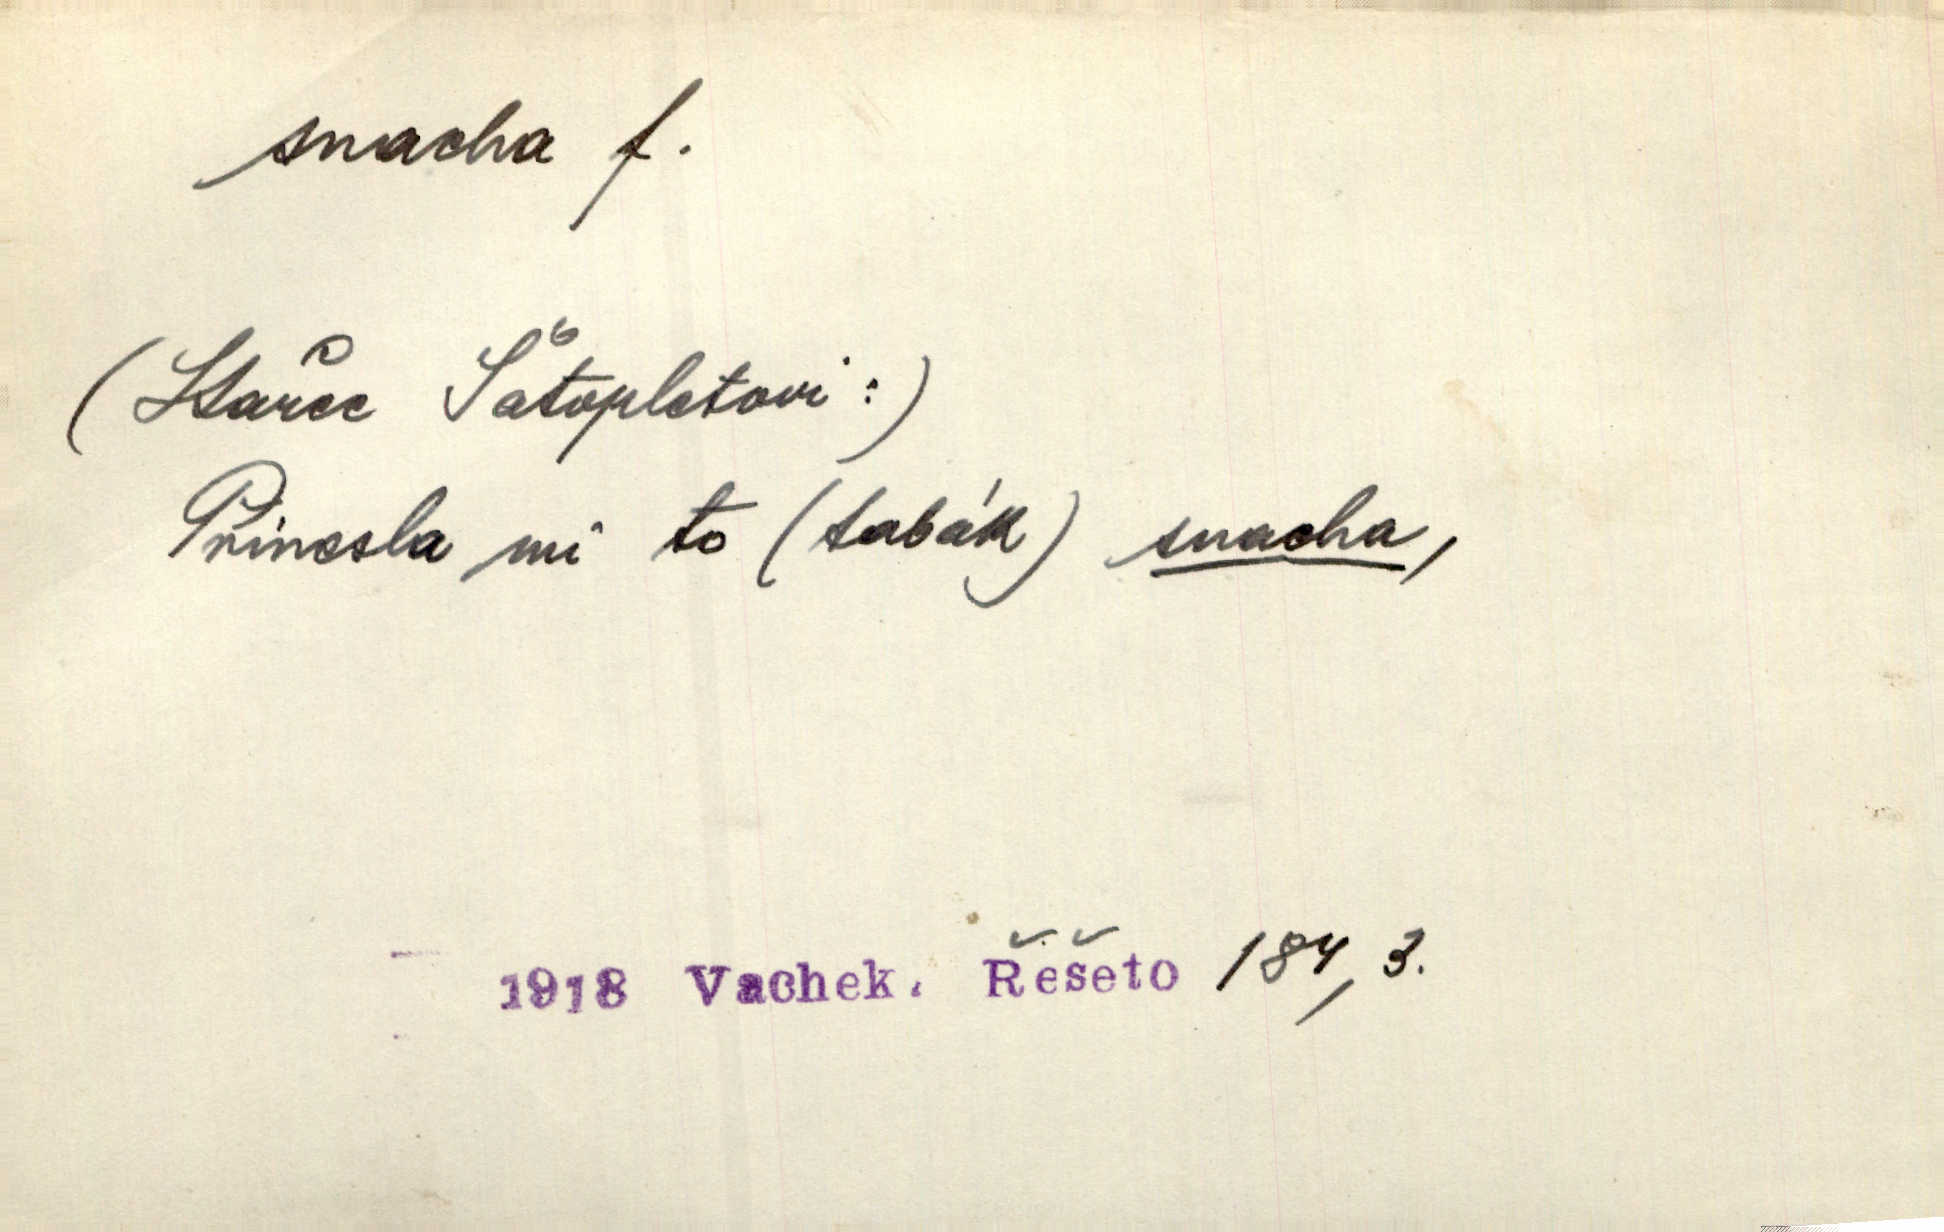 snacha f.
(Stařec Šátopletovi:)
Přinesla mi to (tabák) snacha,
1918 Vachek. Řešeto 184,3.